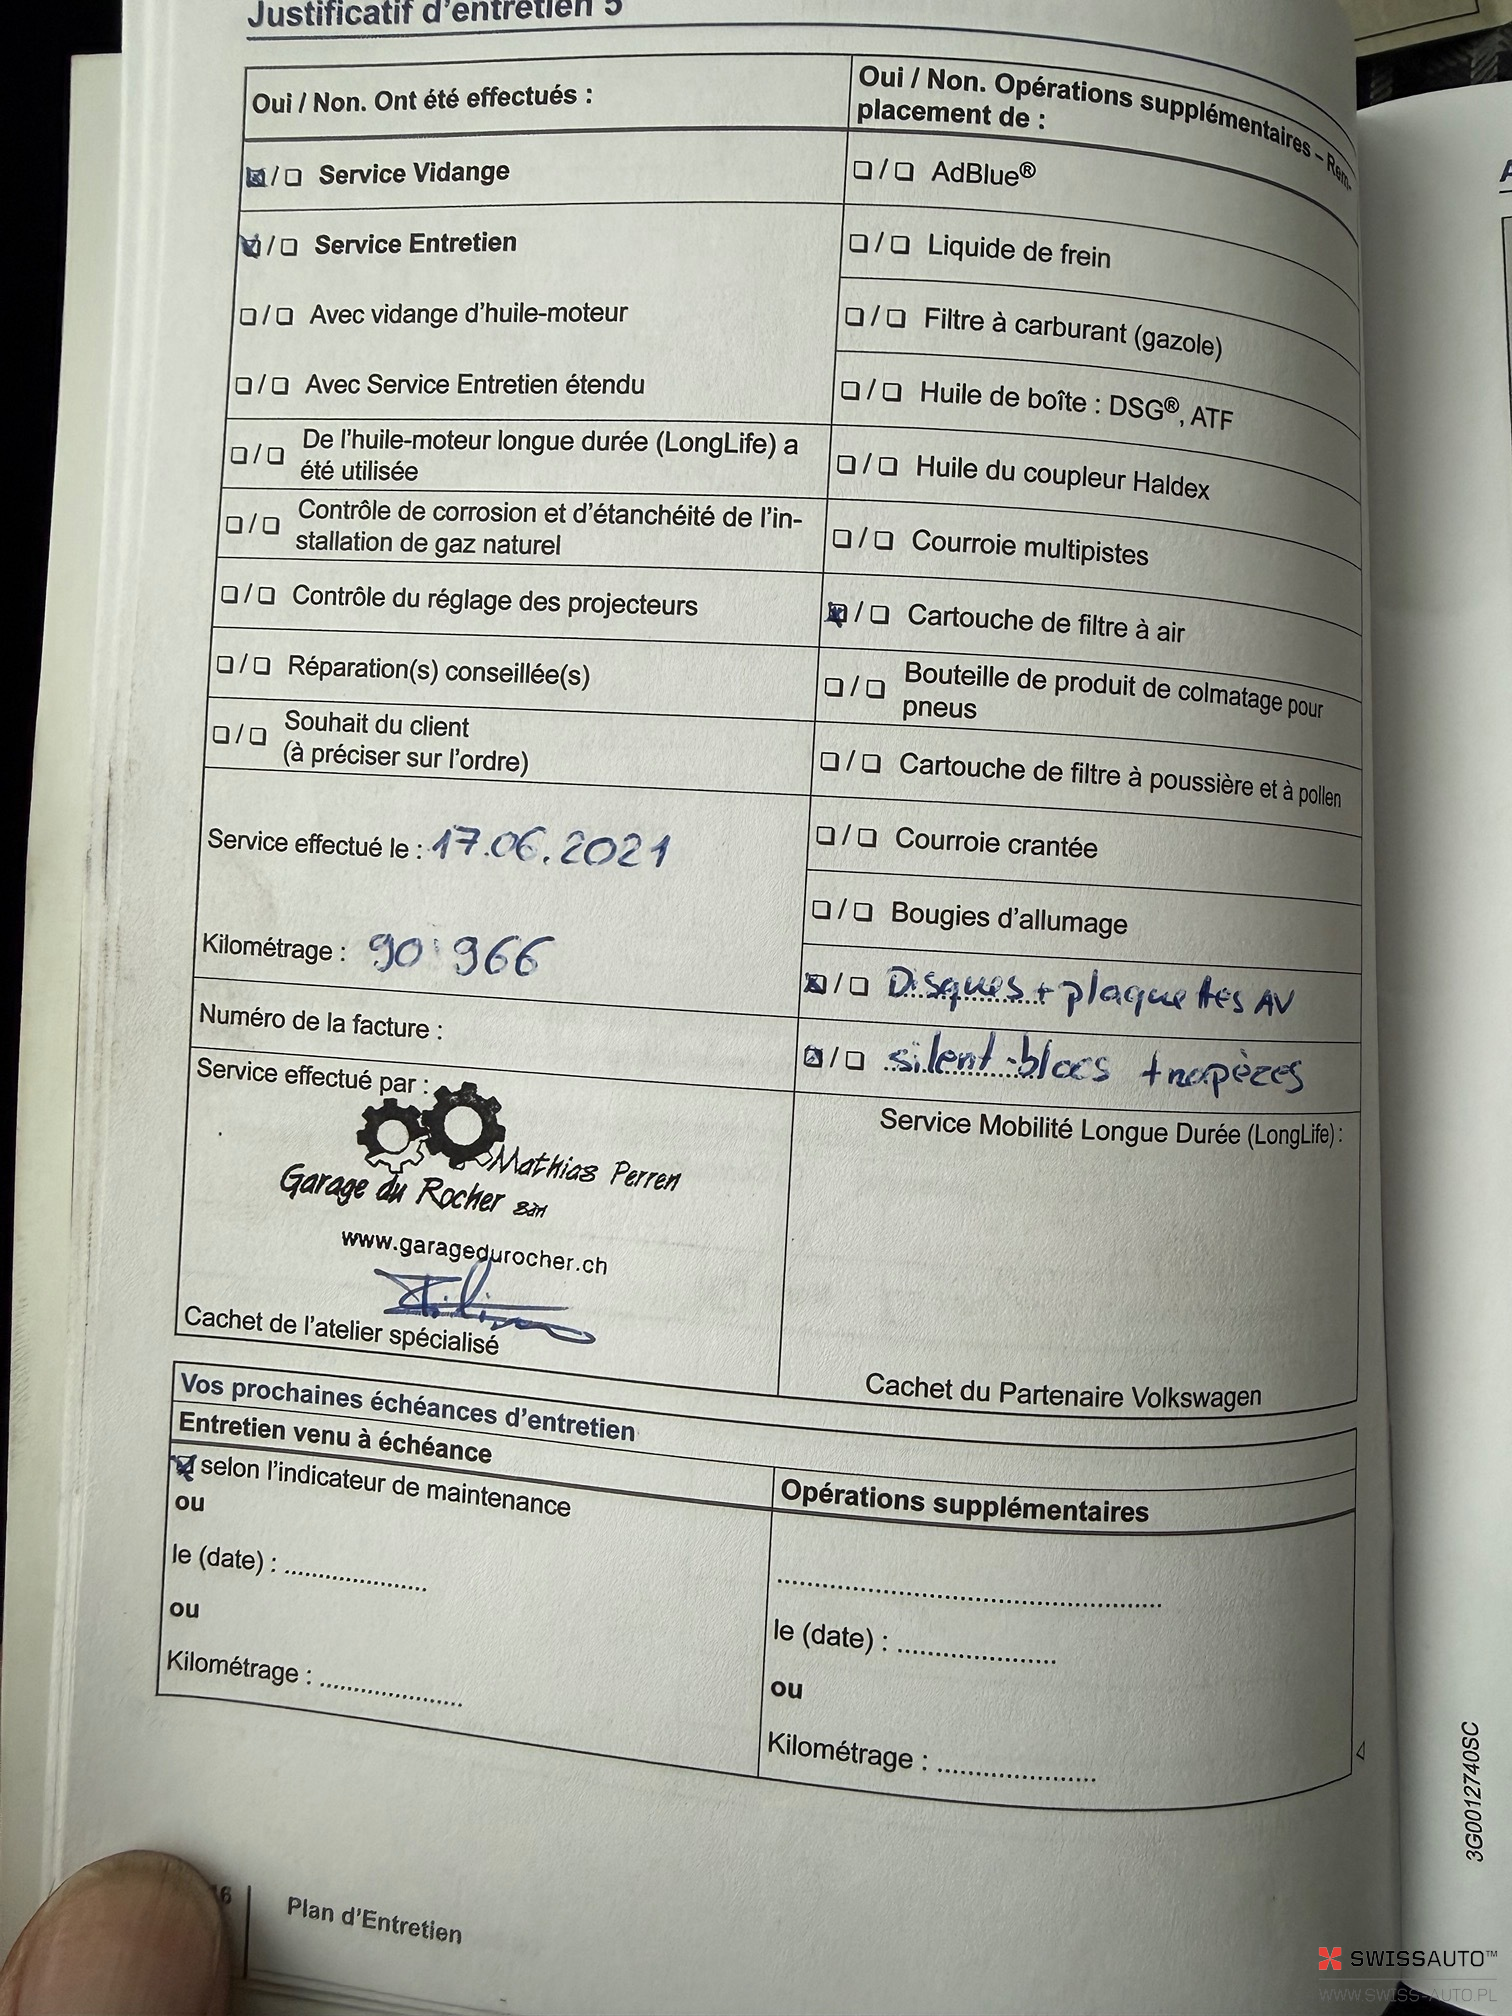 Justificatif d'entretien 5
Oui / Non. Ont été effectués :
☒/❑ Service Vidange
☒/❑ Service Entretien
❑/❑ Avec vidange d'huile-moteur
❑/❑ Avec Service Entretien étendu
❑/❑ De l'huile-moteur longue durée (LongLife) a
été utilisée
❑/❑ Contrôle de corrosion et d'étanchéité de l'in-
stallation de gaz naturel
❑/❑ Contrôle du réglage des projecteurs
❑/❑ Réparation(s) conseillée(s)
❑/❑ Souhait du client
(à préciser sur l'ordre)
Service effectué le : 17.06.2021
Kilométrage : 90'966
Numéro de la facture :
Service effectué par :
Mathias Perren
Garage du Rocher Sàrl
www.garagedurocher.ch
Cachet de l'atelier spécialisé
Oui / Non. Opérations supplémentaires – Rem-
placement de :
❑/❑ AdBlue®
❑/❑ Liquide de frein
❑/❑ Filtre à carburant (gazole)
❑/❑ Huile de boîte : DSG®, ATF
❑/❑ Huile du coupleur Haldex
❑/❑ Courroie multipistes
☒/❑ Cartouche de filtre à air
❑/❑ Bouteille de produit de colmatage pour
pneus
❑/❑ Cartouche de filtre à poussière et à pollen
❑/❑ Courroie crantée
❑/❑ Bougies d'allumage
☒/❑ Disques + plaquettes AV
☒/❑ silent-blocs trapèzes
Service Mobilité Longue Durée (LongLife) :
Cachet du Partenaire Volkswagen
Vos prochaines échéances d'entretien
Entretien venu à échéance
☒ selon l'indicateur de maintenance
ou
le (date) : ....................
ou
Kilométrage : ....................
Opérations supplémentaires
......................................................
le (date) : ......................
ou
Kilométrage : ......................
Plan d'Entretien
3G0012740SC
SWISSAUTO™
WWW.SWISS-AUTO.PL